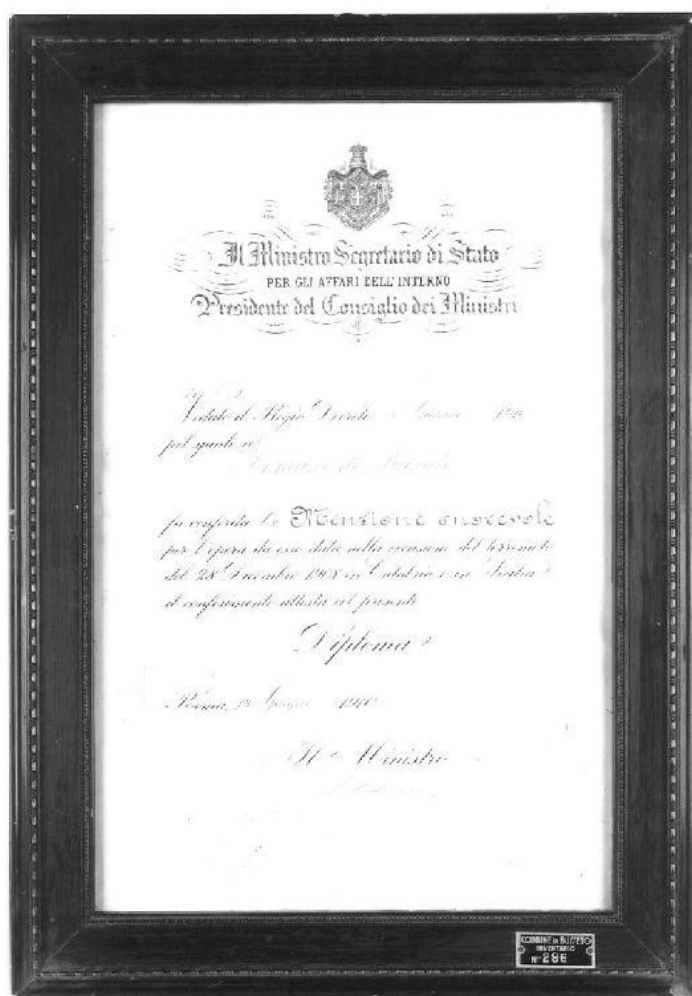 Il Ministro Segretario di Stato
PER GLI AFFARI DELL'INTERNO
Presidente del Consiglio dei Ministri
Veduto il Regio Decreto Giugno 1910
pel quale
fu conferita la Menzione onorevole
per l'opera da esso data nella occasione del terremoto
del 28 Dicembre 1908 in Calabria e in Sicilia
il conferimento attesta col presente
Diploma
Roma, Giugno 1910
Il Ministro
COMUNE DI BUSSETO
INVENTARIO
N° 286